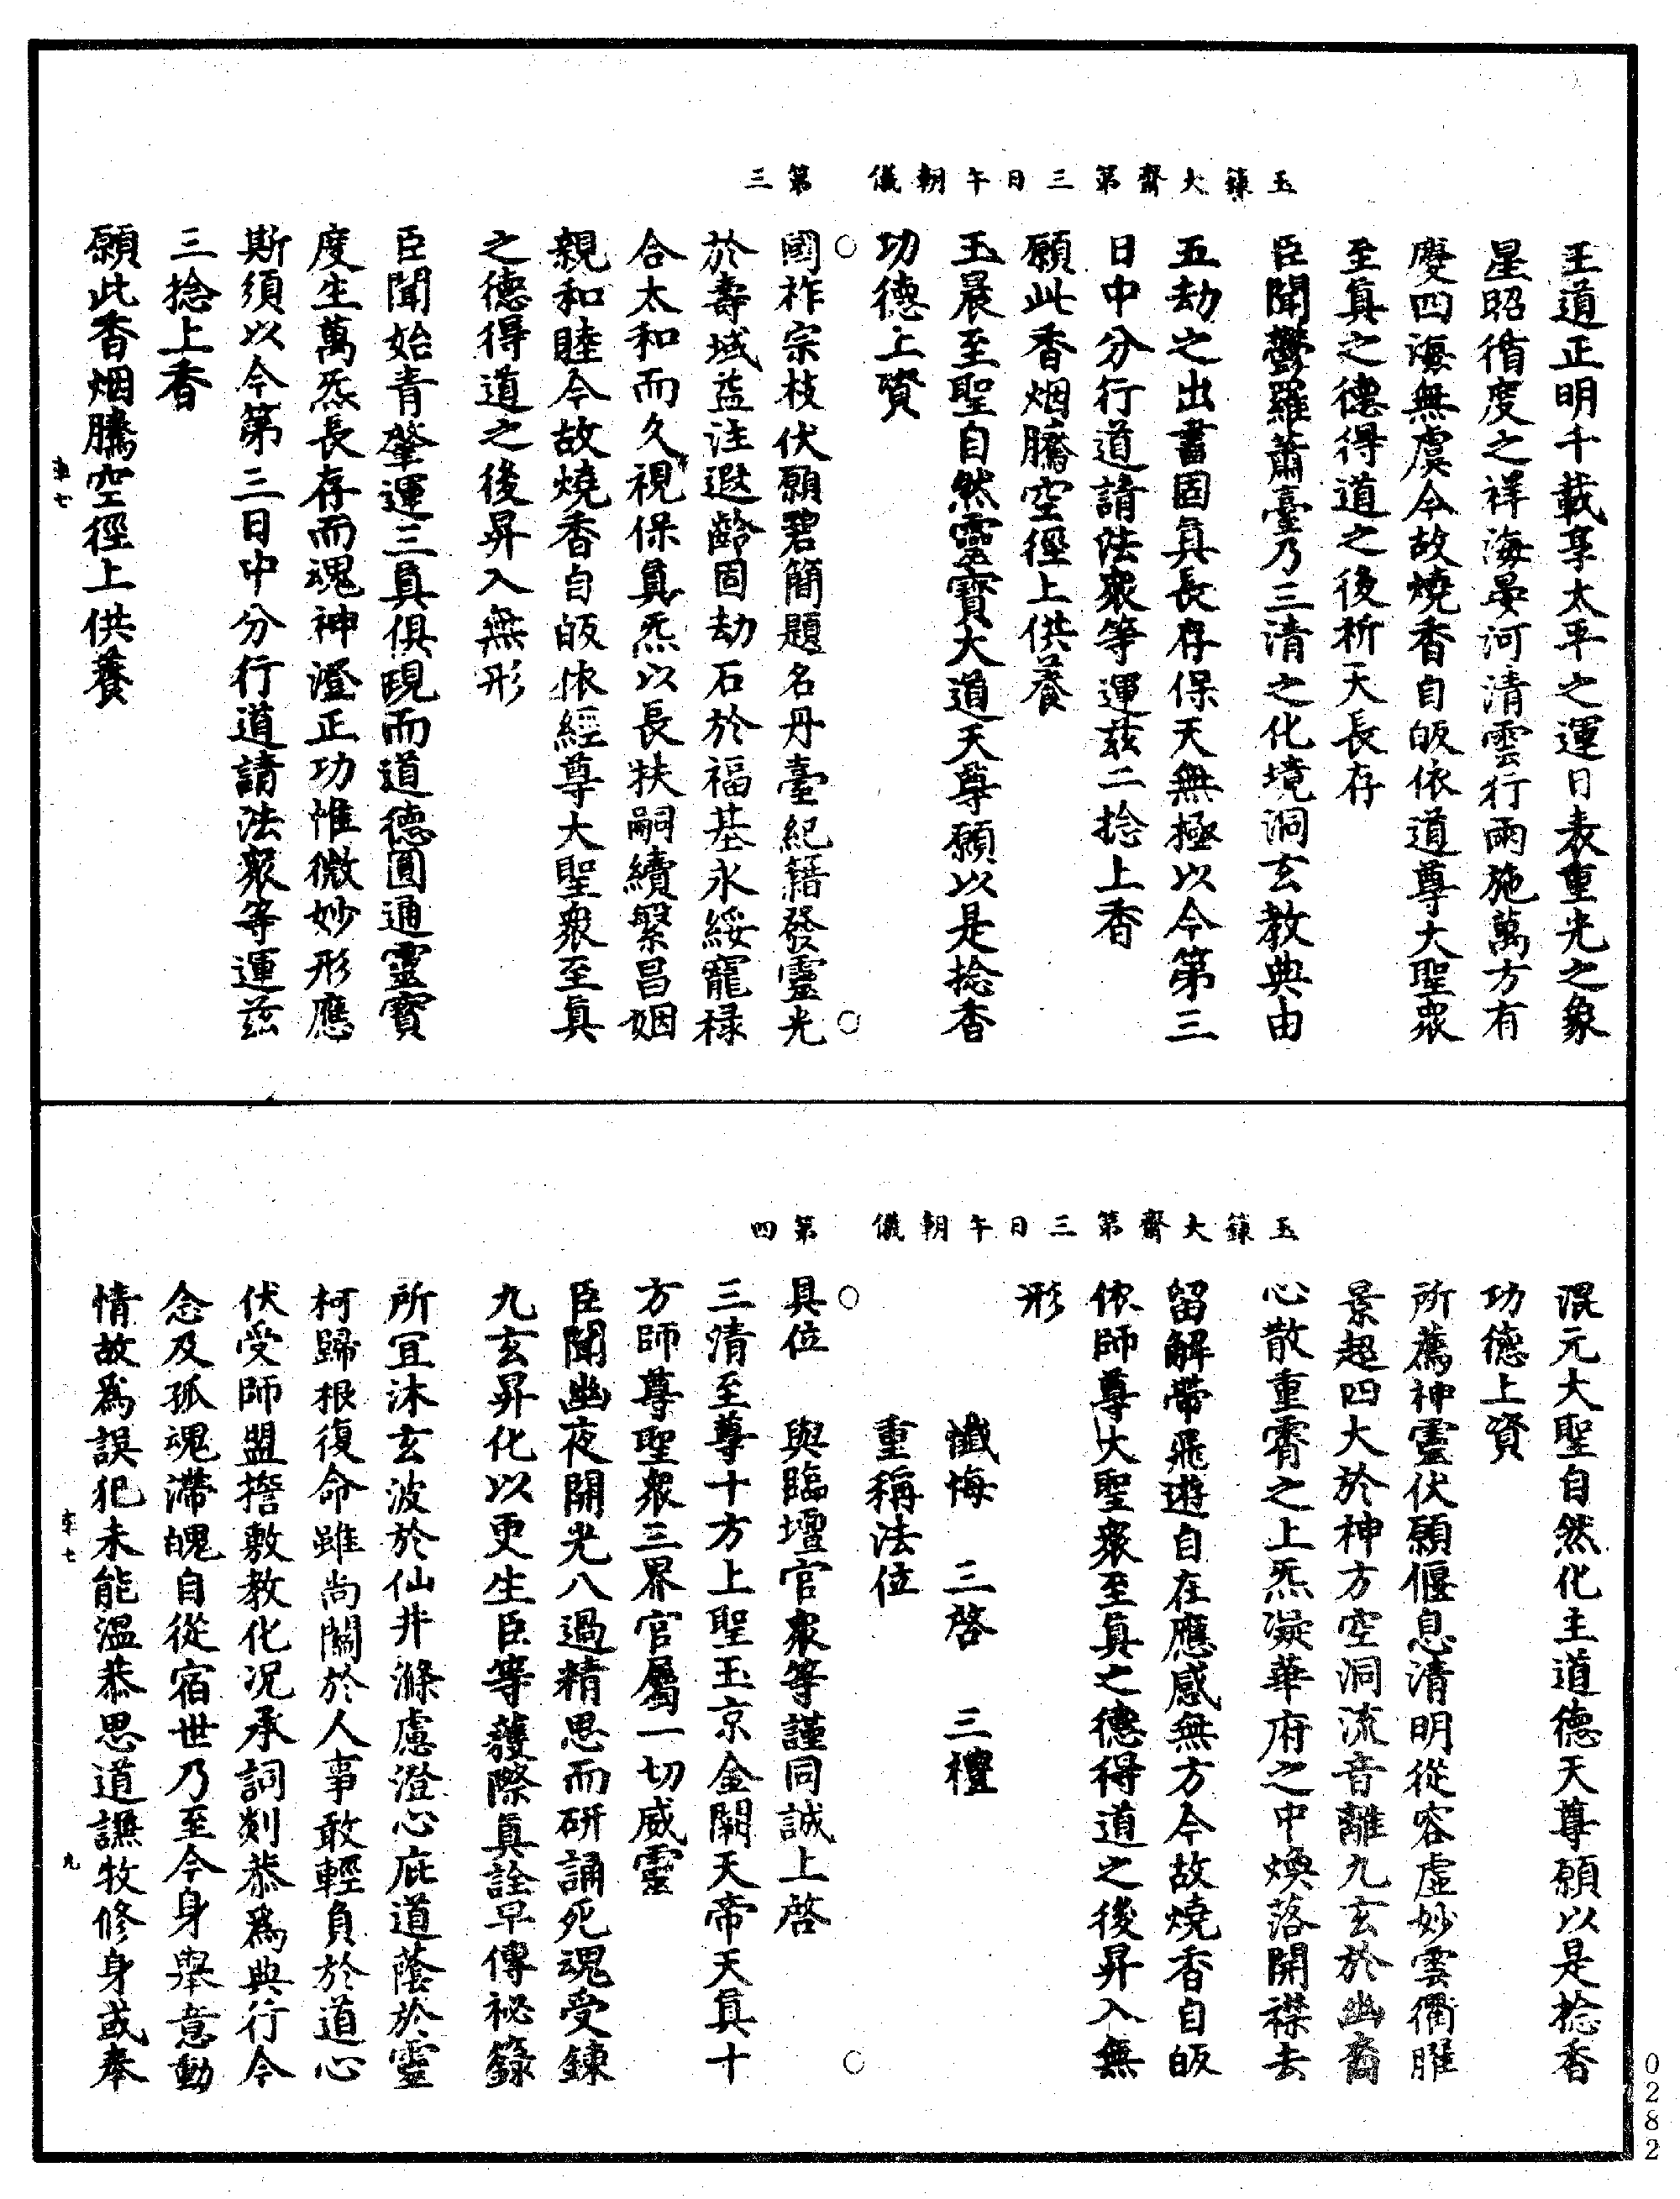 玉籙大齋第三日午朝儀　第三
王道正明千載享太平之運日表重光之象
星昭循度之祥海晏河清雲行雨施萬方有
慶四海無虞今故燒香自皈依道尊大聖眾
至眞之德得道之後祈天長存
臣聞鬱羅蕭臺乃三清之化境洞玄教典由
五劫之出書固眞長存保天無極以今第三
日中分行道請法眾等運茲二捻上香
願此香烟騰空徑上供養
玉晨至聖自然靈寶大道天尊願以是捻香
功德上資
國祚宗枝伏願碧簡題名丹臺紀籍發靈光
於壽域益注遐齡固劫石於福基永綏寵祿
合太和而久視保眞炁以長扶嗣續繄昌姻
親和睦今故燒香自皈依經尊大聖眾至眞
之德得道之後昇入無形
臣聞始青肇運三眞俱現而道德圓通靈寶
度生萬炁長存而魂神澄正功惟微妙形應
斯須以今第三日中分行道請法眾等運茲
三捻上香
願此香烟騰空徑上供養
玉籙大齋第三日午朝儀　第四
混元大聖自然化主道德天尊願以是捻香
功德上資
所薦神靈伏願偃息清明從容虛妙雲衢睢
景超四大於神方空洞流音離九玄於幽裔
心散重霄之上炁凝華府之中煥落開襟去
留解帶飛遊自在應感無方今故燒香自皈
依師尊大聖眾至眞之德得道之後昇入無
形
懺悔　三啓　三禮
重稱法位
具位　與臨壇官眾等謹同誠上啓
三清至尊十方上聖玉京金闕天帝天眞十
方師尊聖眾三界官屬一切威靈
臣聞幽夜開光八過精思而研誦死魂受鍊
九玄昇化以更生臣等獲際眞詮早傳祕籙
所宜沐玄波於仙井滌慮澄心庇道蔭於靈
柯歸根復命雖尚關於人事敢輕負於道心
伏受師盟擔敷教化況承詞剡恭爲典行今
念及孤魂滯魄自從宿世乃至今身舉意動
情故爲誤犯未能溫恭思道謙牧修身或奉
0282